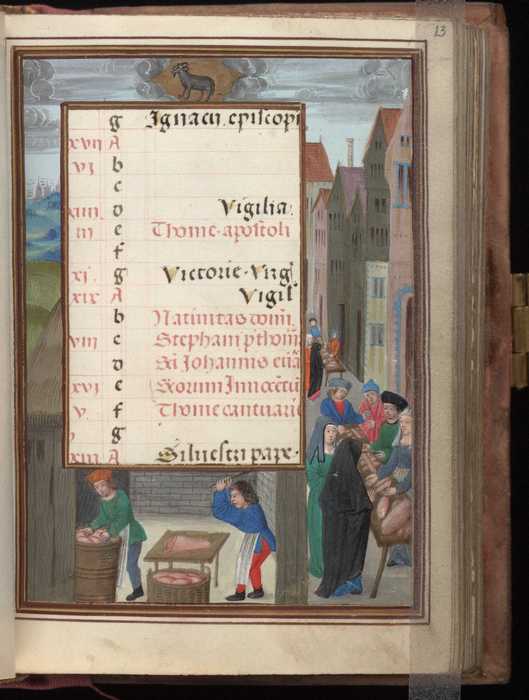 13
g Ignacii episcopi
xvii A
vi b
c
xiiii d Vigilia
iii e Thome apostoli
f
xi g Victorie Virg
xix A Vigil
b Natiuitas domi
viii c Stephani
d Sci Johannis
xvi e Scorum
v f Thome cantuarie
g
xiii A Siluestri pape